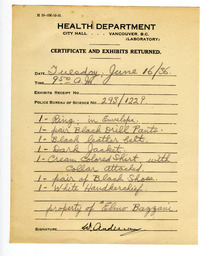 HEALTH DEPARTMENT
CITY HALL .... VANCOUVER, B.C.
(LABORATORY)
CERTIFICATE AND EXHIBITS RETURNED.
DATE Tuesday, June 16/36.
9:50 A.M.
EXHIBITS RECEIPT NO.
POLICE BUREAU OF SCIENCE NO. 293/1229
1 - Ring, in Envelope.
1 - pair Black Drill Pants.
1 - Black leather belt.
1 - Dark Jacket.
1 - Cream Colored Shirt, with
Collar attached.
1 - pair of Black Shoes.
1 - White Handkerchief.
property of "Elmo Bazzani
SIGNATURE W. Anderson